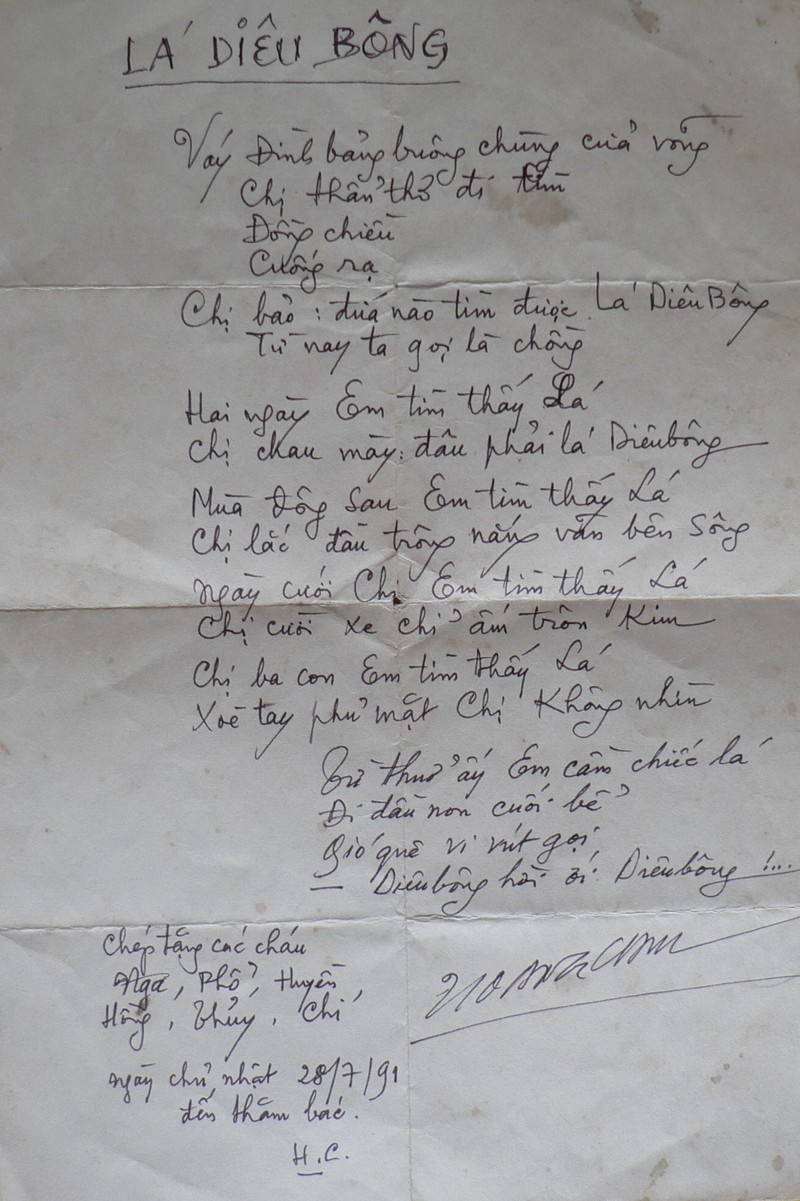 LÁ DIÊU BÔNG
Váy Đình bảng buông chùng cửa võng
Chị thẩn thơ đi tìm
Đồng chiều
Cuống rạ
Chị bảo : đứa nào tìm được Lá Diêu Bông
Từ nay ta gọi là chồng
Hai ngày Em tìm thấy Lá
Chị chau mày: đâu phải lá Diêubông
Mùa đông sau Em tìm thấy Lá
Chị lắc đầu trông nắng vãn bên sông
Ngày cưới Chị Em tìm thấy Lá
Chị cười xe chỉ ấm trôn Kim
Chị ba con Em tìm thấy Lá
Xoè tay phủ mặt Chị Không nhìn
Từ thuở ấy Em cầm chiếc lá
Đi đầu non cuối bể
Gió quê vi vút gọi
– Diêubông hời ới Diêubông !...
HOANGCAM
Chép tặng các cháu
Nga, Phổ, Huyền,
Hồng, Thủy, Chí
Ngày chủ nhật 28/7/91
đến thăm bác.
H.C.